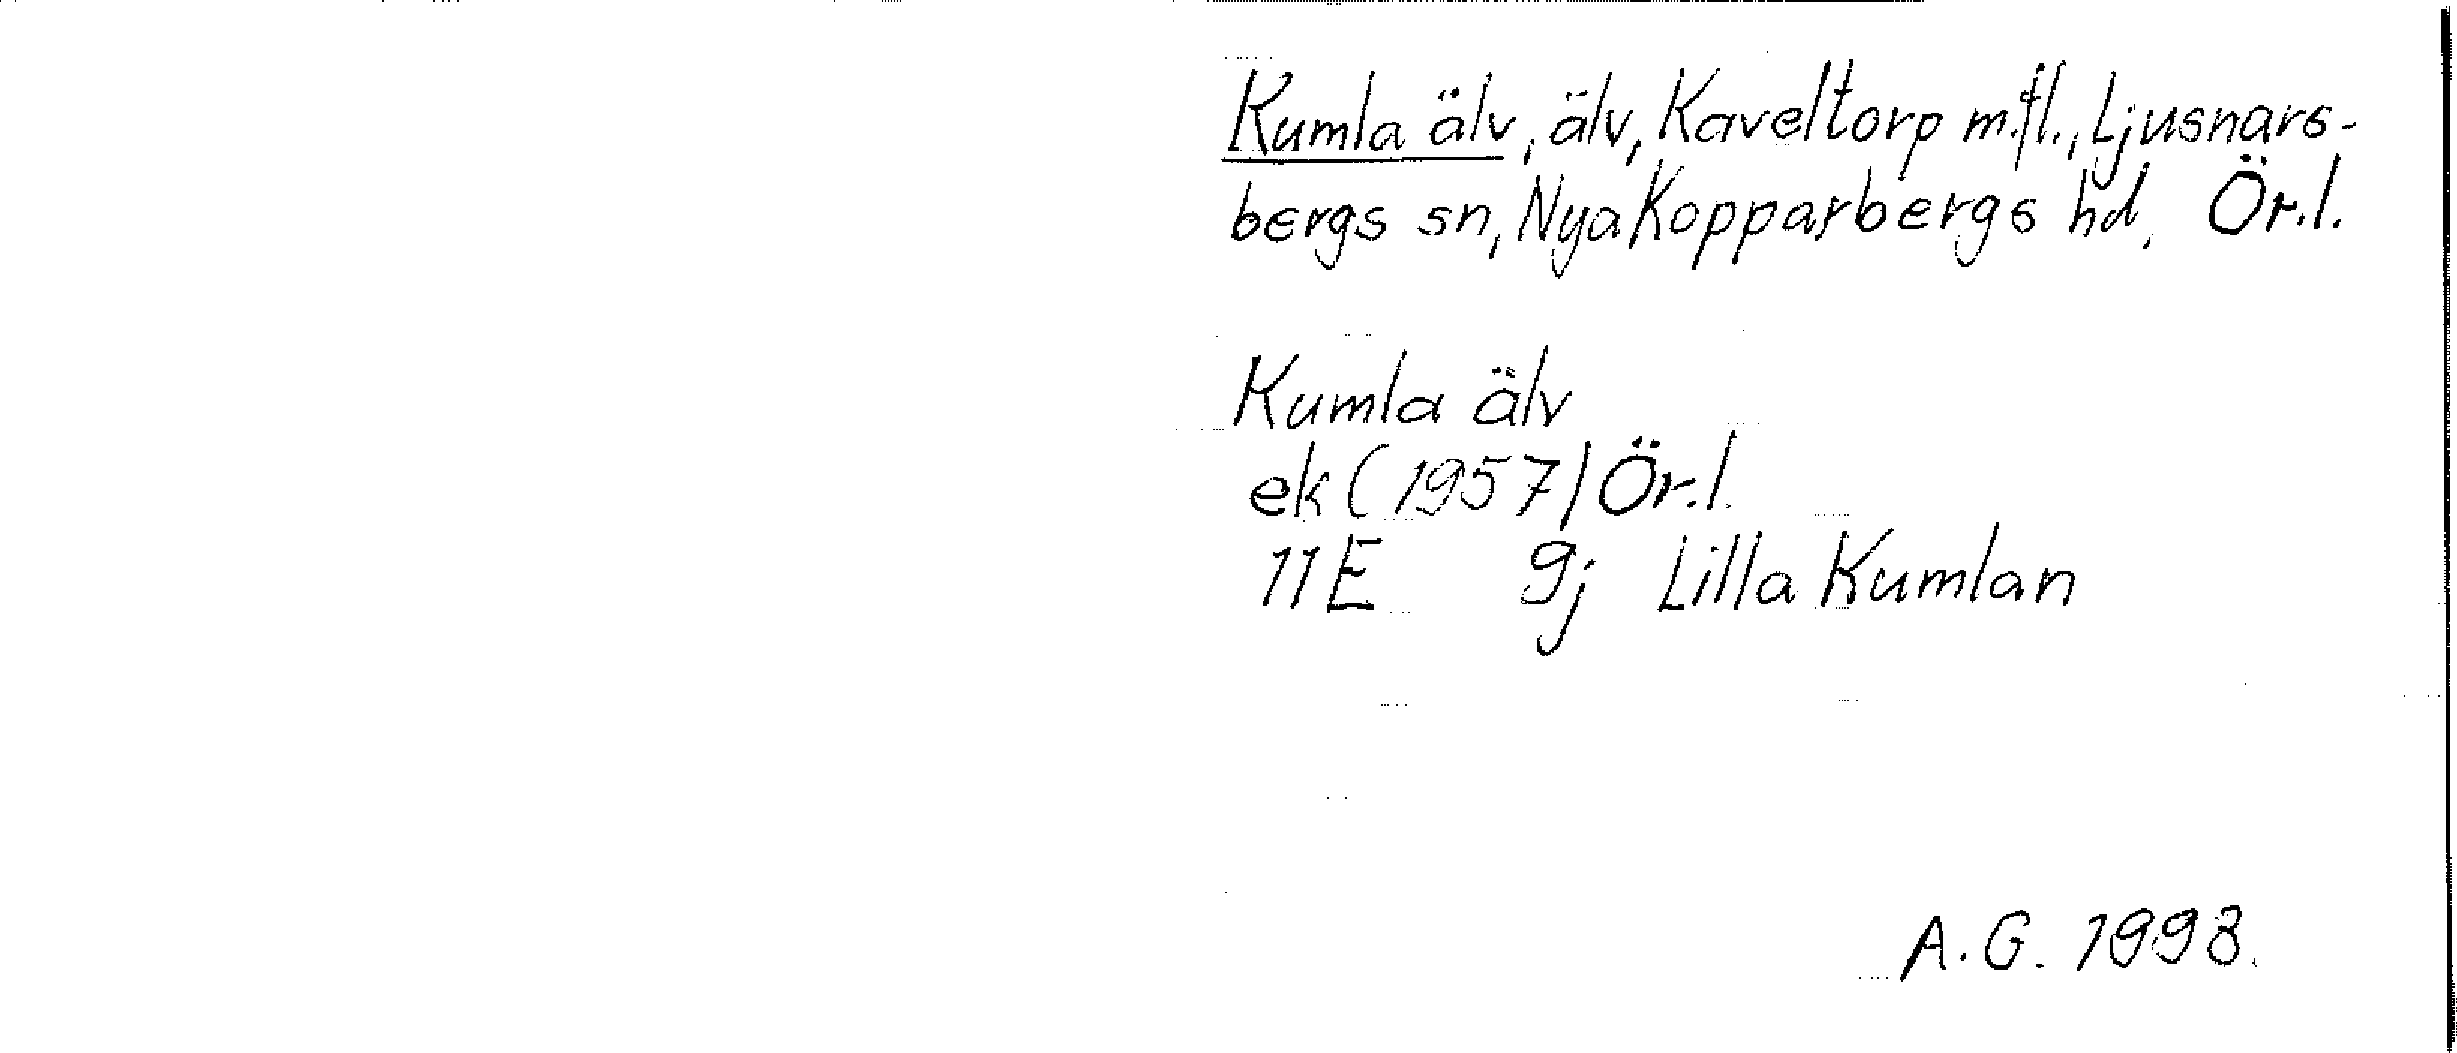 Kumla älv, älv, Kaveltorp m.fl., Ljusnars-
bergs sn, Nya Kopparbergs hd, Ör.l.
Kumla älv
ek (1957) Ör.l.
11E 9j Lilla Kumlan
A.G. 1998.